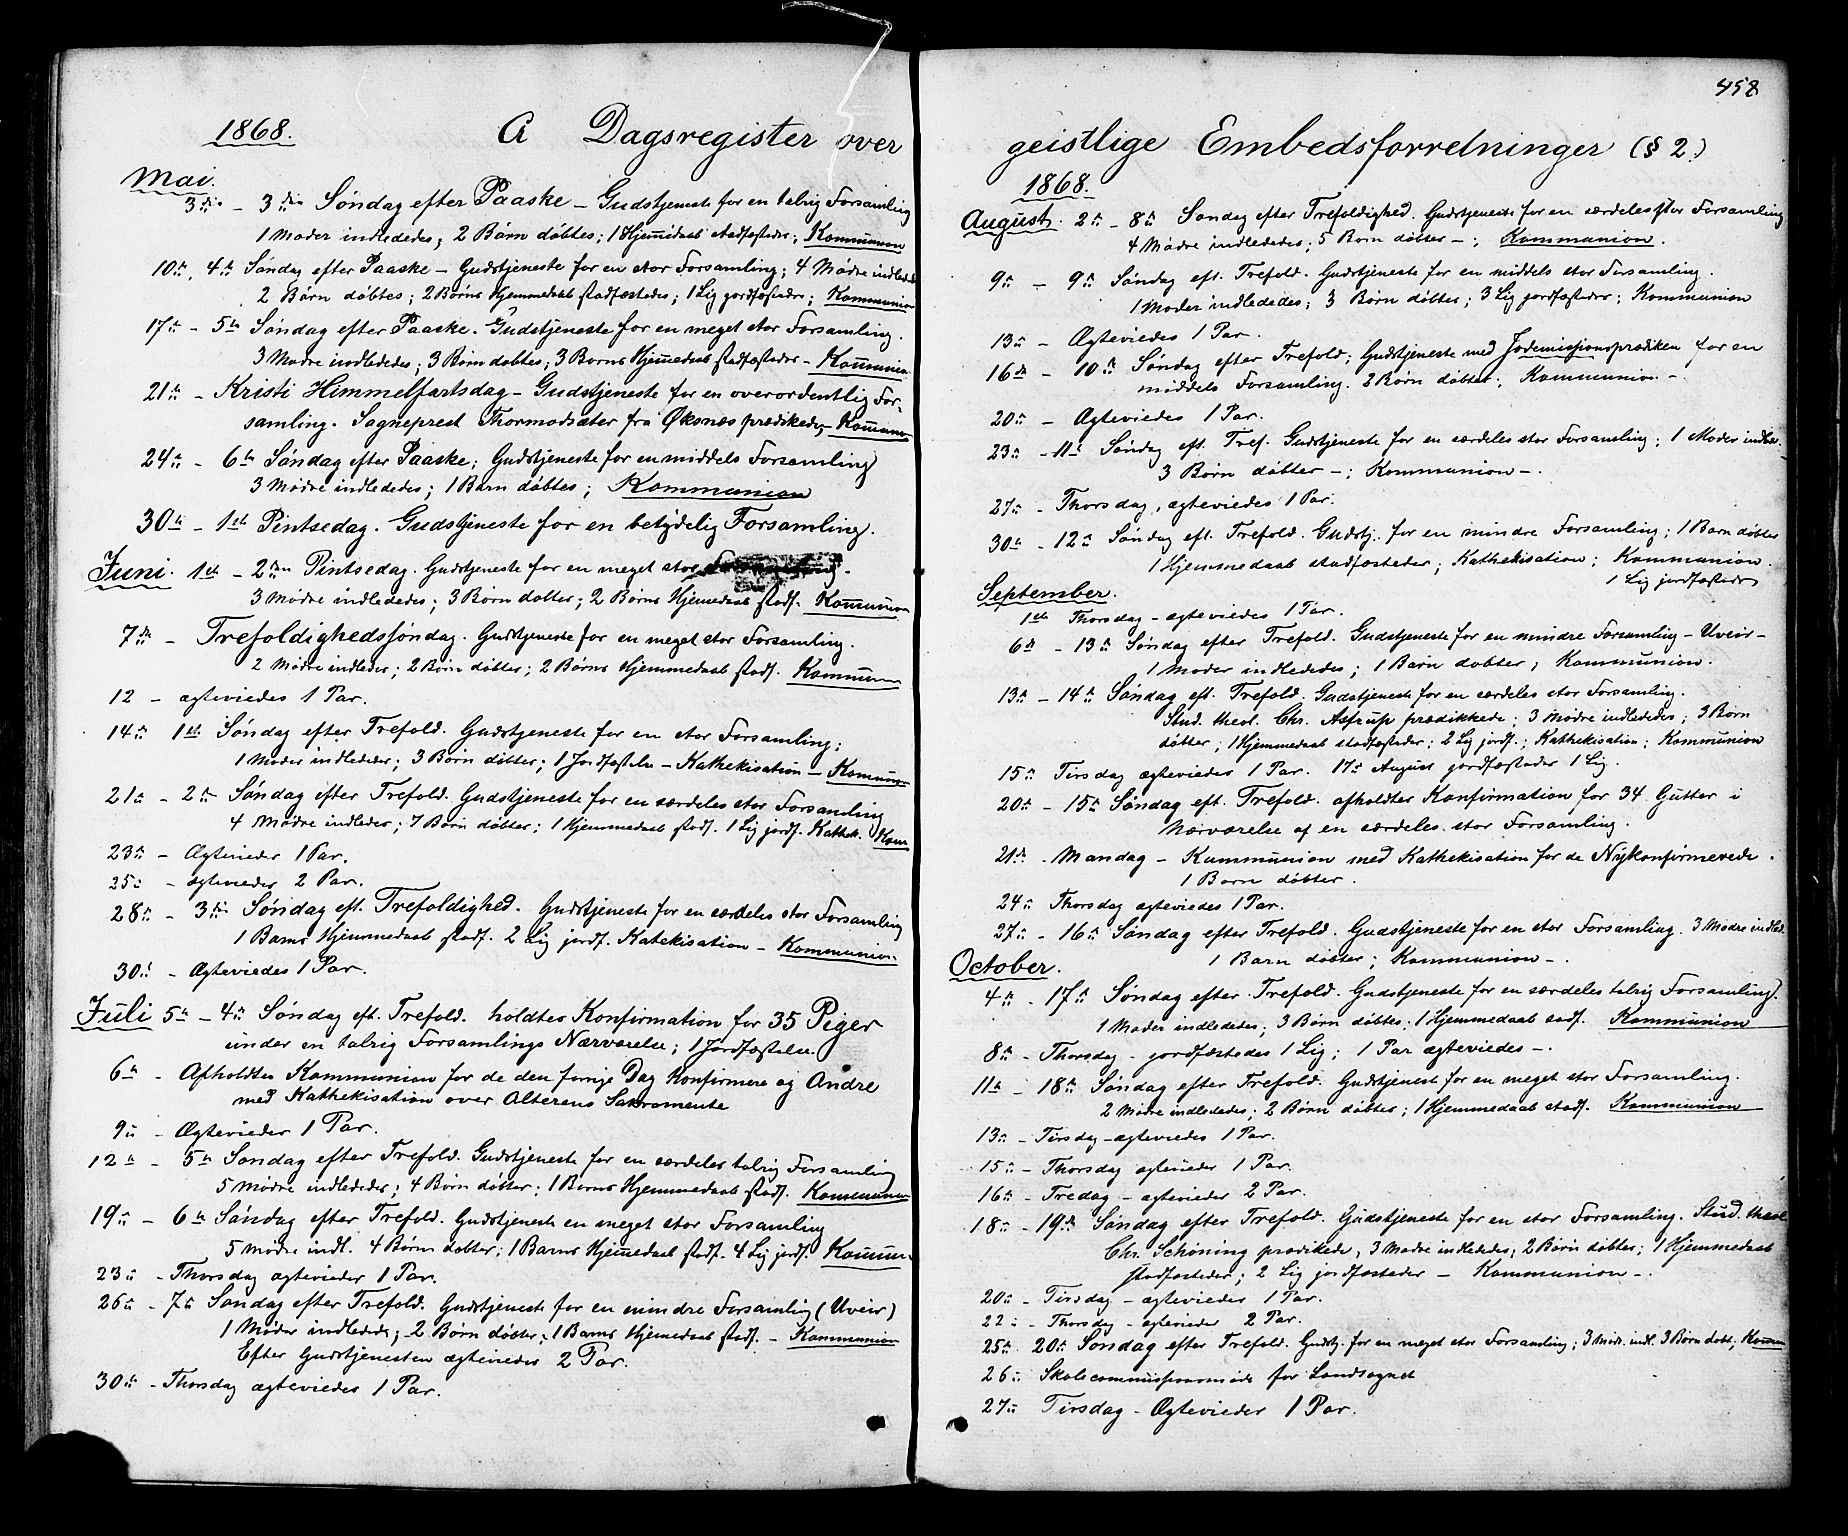 1868. A Dagsregister over
Mai.
3die – 3die Søndag efter Paaske – Gudstjeneste for en talrig Forsamling
1 Moder indledes; 2 Børn døbtes; 1 Hjemedaab stadfæstedes; Kommunion
10de, 4de Søndag efter Paaske – Gudstjeneste for en stor Forsamling; 4 Mødre indlededes
2 Børn døbtes; 2 Børns Hjemmedaab stadfæstedes; 1 Lig jordfæstedes; Kommunion
17de – 5te Søndag efter Paaske. Gudstjeneste for en meget stor Forsamling.
3 Mødre indlededes; 3 Børn døbtes; 3 Børns Hjemedaab stadfæstedes – Kommunion.
21de – Kristi Himmelfartsdag – Gudstjeneste for en overordentlig For-
samling. Sogneprest Thormodsæter fra Øksnæs prædikede, – Kommunion
24de – 6te Søndag efter Paaske; Gudstjeneste for en middels Forsamling
3 Mødre indlededes; 1 Barn døbtes; Kommunion
30te – 1ste Pintsedag. Gudstjeneste for en betydelig Forsamling.
Juni. 1ste – 2den Pintsedag. Gudstjeneste for en meget stor Forsamling.
3 Mødre indlededes; 3 Børn døbtes; 2 Børns Hjemedaab stadf. Kommunion
7de – Trefoldighedssøndag. Gudstjeneste for en meget stor Forsamling.
2 Mødre indledes; 2 Børn døbtes; 2 Børns Hjemmedaab stadf. Kommunion
12 – ægteviedes 1 Par.
14de 1ste Søndag efter Trefold. Gudstjeneste for en stor Forsamling;
1 Moder indledes; 3 Børn døbtes; 1 Jordfæstelse – Kathekisation – Kommunion
21de – 2den Søndag efter Trefold. Gudstjeneste for en særdeles stor Forsamling
4 Mødre indledes; 7 Børn døbtes; 1 Hjemmedaab stadf. 1 Lig jordf. Kathek. Kom
23de – Ægteviedes 1 Par.
25de – ægteviedes 2 Par.
28de – 3die Søndag eft. Trefoldighed. Gudstjeneste for en særdeles stor Forsamling
1 Barns Hjemmedaab stadf. 2 Lig jordf. Katekisation – Kommunion.
30te – Ægteviedes 1 Par.
Juli 5te – 4de Søndag eft. Trefold. holdtes Konfirmation for 35 Piger
under en talrig Forsamlings Nærværelse; 1 Jordfæstelse.
6te – Afholdtes Kommunion for de den forrige Dag Konfirmere og Andre
med Kathekisation over Alterens Sakramente
9de – Ægteviedes 1 Par.
12te – 5te Søndag efter Trefold. Gudstjeneste for en særdeles talrig Forsamling
5 Mødre indledes; 4 Børn døbtes; 1 Barns Hjemmedaab stadf. Kommunion
19de – 6te Søndag efter Trefold. Gudstjeneste en meget stor Forsamling
5 Mødre indl. 4 Børn døbtes; 1 Barns Hjemedaab stadf. 4 Lig jordf. Kommun.
23de – Thorsdag ægteviedes 1 Par.
26de – 7de Søndag efter Trefold. Gudstjeneste for en mindre Forsamling (Uveir)
1 Moder indledes; 2 Børn døbtes; 1 Barns Hjemedaab stadf. – Kommunion
Efter Gudstjenesten ægteviedes 2 Par.
30te – Thorsdag ægteviedes 1 Par.
458
geistlige Embedsforretninger (§ 2.)
1868.
August. 2de – 8de Søndag efter Trefoldighed. Gudstjeneste for en særdeles stor Forsamling
4 Mødre indlededes; 5 Børn døbtes –; Kommunion.
9de – 9de Søndag eft. Trefold. Gudstjeneste for en middels stor Forsamling.
1 Moder indlededes; 3 Børn døbtes; 3 Lig jordfæstedes; Kommunion
13de – Ægteviedes 1 Par.
16de – 10de Søndag efter Trefold; Gudstjeneste med Jødemissionsprædiken for en
middels Forsamling. 2 Børn døbtes; Kommunion –.
20de – Ægteviedes 1 Par.
23de – 11te Søndag eft. Tref. Gudstjeneste for en særdeles stor Forsamling; 1 Moder indled.
3 Børn døbtes –; Kommunion –.
27de – Thorsdag, ægteviedes 1 Par.
30te – 12te Søndag eft. Trefold. Gudstj. for en mindre Forsamling; 1 Barn døbtes
1 Hjemmedaab stadfæstedes; Kathekisation; Kommunion.
1 Lig jordfæstedes
September.
1ste Thorsdag – ægteviedes 1 Par.
6te – 13de Søndag efter Trefold. Gudstjeneste for en mindre Forsamling – Uveir –
1 Moder indlededes; 1 Barn døbtes; Kommunion.
13de – 14de Søndag eft. Trefold. Gudstjeneste for en særdeles stor Forsamling.
Stud. theol. Chr. Astrup prædikkede; 3 Mødre indlededes; 3 Børn
døbtes; 1 Hjemmedaab stadfæstedes; 2 Lig jordf.; Kathekisation; Kommunion
15de Tirsdag ægteviedes 1 Par. 17de August jordfæstedes 1 Lig.
20de – 15de Søndag eft. Trefold. afholdtes Konfirmation for 34 Gutter i
Nærværelse af en særdeles stor Forsamling.
21de – Mandag – Kommunion med Kathekisation for de Nykonfirmerede.
1 Barn døbtes.
24de Thorsdag ægteviedes 1 Par.
27de – 16de Søndag efter Trefold. Gudstjeneste for en stor Forsamling. 3 Mødre indled.
1 Barn døbtes; Kommunion –.
October.
4de – 17de Søndag efter Trefold. Gudstjeneste for en særdeles talrig Forsamling.
1 Moder indlededes; 3 Børn døbtes; 1 Hjemmedaab stadf. Kommunion
8de – Thorsdag – jordfæstedes 1 Lig; 1 Par ægteviedes –.
11te – 18de Søndag efter Trefold. Gudstjeneste for en meget stor Forsamling.
2 Mødre indlededes; 2 Børn døbtes; 1 Hjemmedaab stadf. Kommunion
13de – Tirsdag – ægteviedes 1 Par.
15de – Thorsdag ægteviedes 1 Par.
16de – Fredag – ægteviedes 2 Par.
18de – 19de Søndag efter Trefold. Gudstjeneste for en stor Forsamling. Stud. theol.
Chr. Schöning prædikede, 3 Mødre indlededes; 2 Børn døbtes; 1 Hjemmedaab
stadfæstedes; 2 Lig jordfæstedes – Kommunion –.
20de – Tirsdag – ægteviedes 1 Par.
22de – Thorsdag – ægteviedes 2 Par.
25de. 20de Søndag efter Trefold. Gudstj. for en meget stor Forsamling; 3 Mød. indl. 3 Børn døbt; Komm
26de Skolecommissionsmøde for Landsognet
27de Tirsdag – Ægteviedes 1 Par.